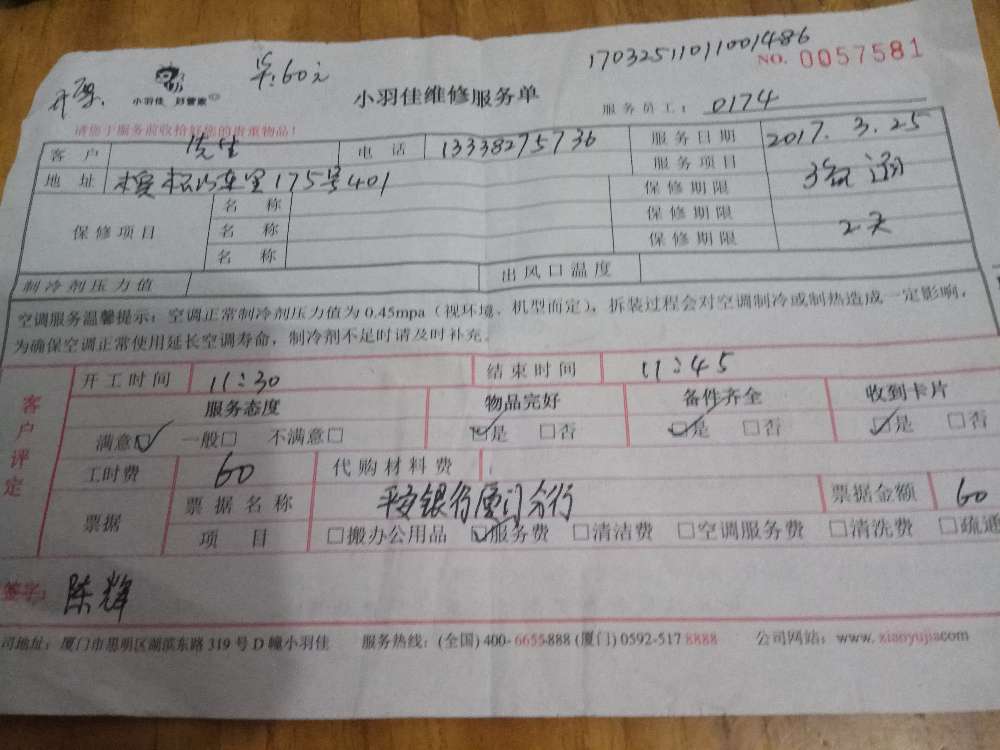 17032511011001486
单:60元
NO. 0057581
小羽佳 好管家
小羽佳维修服务单
服务员工: 0174
请您于服务前收拾好您的贵重物品!
客户 先生 电话 13338275736 服务日期 2017.3.25
服务项目
地址 槟榔东里175号401 保修期限
保修项目 名称 保修期限
名称 保修期限 2天
名称
制冷剂压力值 出风口温度
空调服务温馨提示:空调正常制冷剂压力值为0.45mpa(视环境、机型而定),拆装过程会对空调制冷或制热造成一定影响,
为确保空调正常使用延长空调寿命,制冷剂不足时请及时补充。
客户评定
开工时间 11:30 结束时间 11:45
服务态度 物品完好 备件齐全 收到卡片
满意☑ 一般□ 不满意□ ☑是 □否 ☑是 □否 ☑是 □否
工时费 60 代购材料费
票据 票据名称 平安银行厦门分行 票据金额 60
项目 □搬办公用品 ☑服务费 □清洁费 □空调服务费 □清洗费 □疏通
签字: 陈辉
司地址:厦门市思明区湖滨东路319号D幢小羽佳 服务热线:(全国)400-6655888 (厦门) 0592-5178888 公司网站:www.xiaoyujia.com